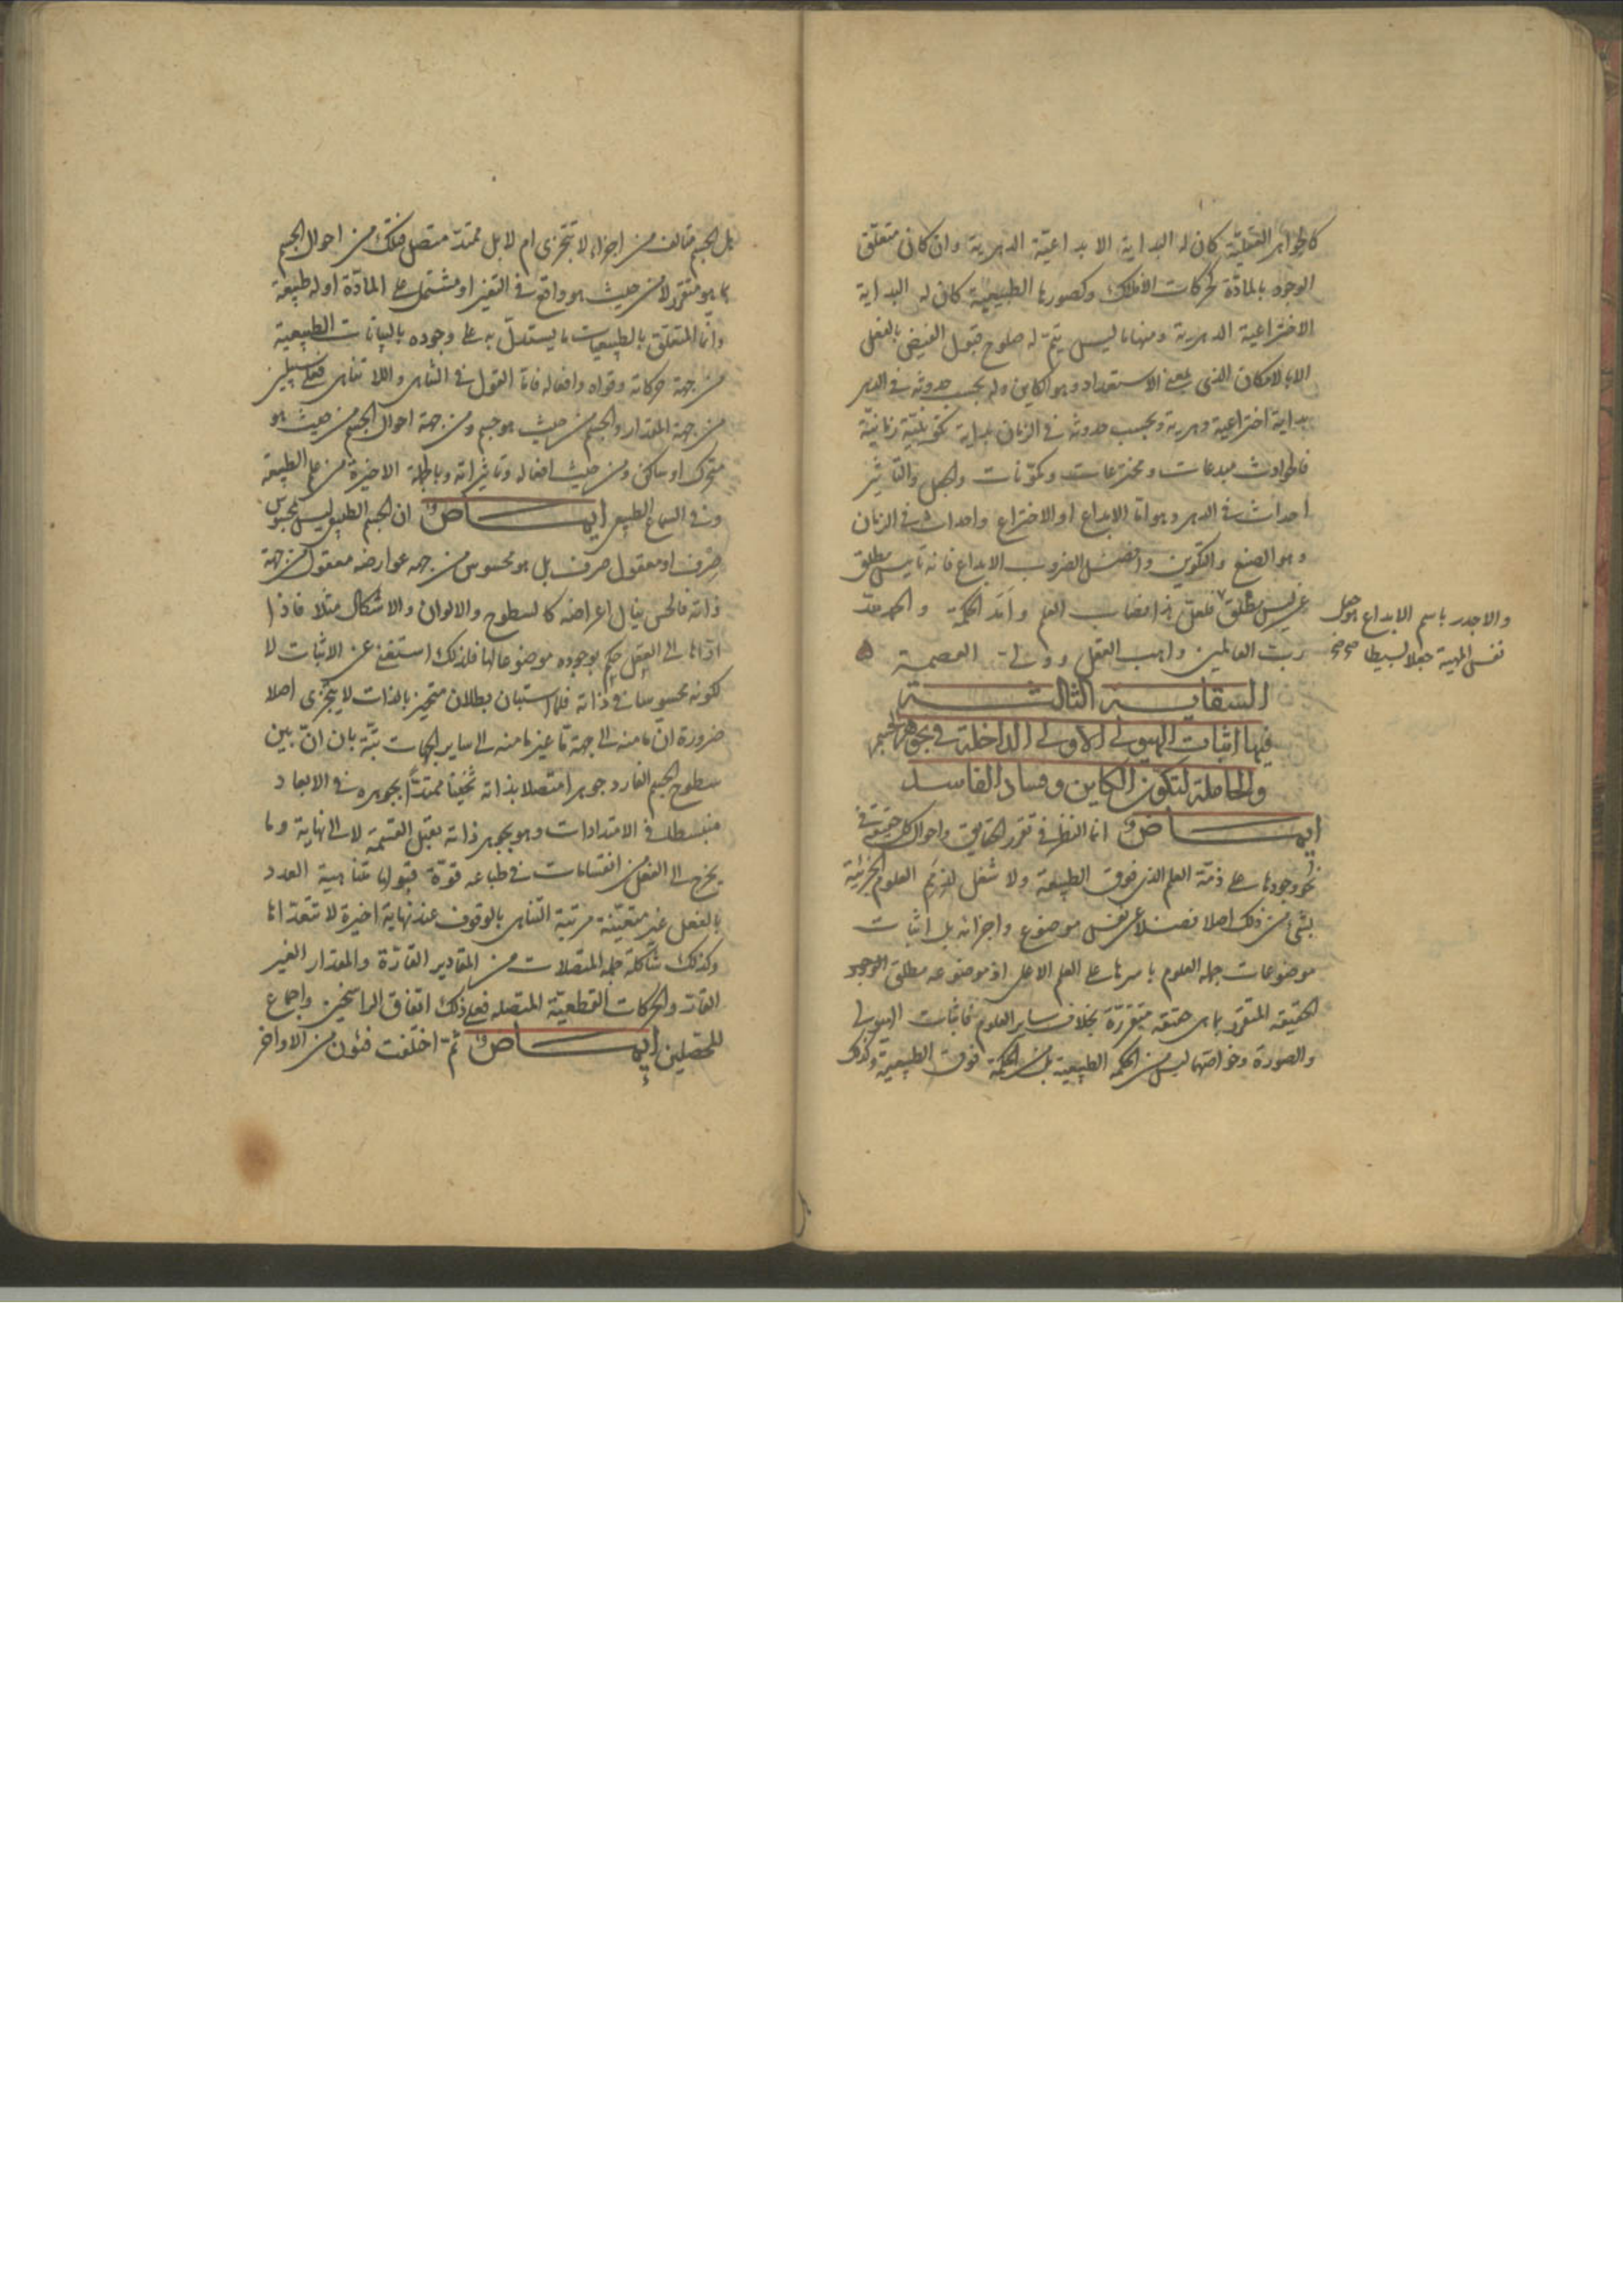 كالجواهر العقلية كان له البداية الابداعية الدهرية وان كان متعلق
الوجود بالمادة كحركات الافلاك وكصورها الطبيعية كان له البداية
الاختراعية الدهرية ومنها ما ليس يتم له صلوح قبول الفيض بالفعل
الا بالامكان الذى بمعنى الاستعداد وهو الكاين وله بحسب حدوثه فى الدهر
بداية اختراعية دهرية وبحسب حدوثه فى الزمان بداية تكوينية زمانية
فالحوادث مبدعات ومخترعات ومكونات والجعل والتاثير
احداث فى الدهر وهو اما الابداع او الاختراع واحداث فى الزمان
وهو الصنع والتكوين وافضل الضروب الابداع فانه تأييس مطلق
عن ليس مطلق فلعل هذا نصاب العلم وامد الحكمة والحمد لله
رب العالمين واهب العقل وولى العصمة
والاجدر باسم الابداع هو جعل
نفس المهية جعلا بسيطا صح
السقاية الثالثة
فيها اثبات الهيولى الاولى الداخلة فى جوهر الجسم
والحاملة لتكون الكاين وفساد الفاسد
ايماض انما النظر فى تقرر الحقايق واحوال كل حقيقة فى
نحو وجودها على ذمة العلم الذى فوق الطبيعة ولا شغل لذمم العلوم الجزئية
بشئ من ذلك اصلا فضلا عن نفس موضوع واجزائه بل اثبات
موضوعات جملة العلوم باسرها على العلم الاعلى اذ موضوعه مطلق الوجود
الحقيقة المتقرر بما هى حقيقة متقررة بخلاف ساير العلوم فاثبات الهيولى
والصورة وخواصهما ليس من الحكمة الطبيعية بل من الحكمة فوق الطبيعية وكذلك
هل الجسم متالف من اجزاء لا تتجزى ام لا بل ممتد متصل فذلك من احوال الجسم
بما هو متقرر لا من حيث هو واقع فى التغير او مشتمل على المادة او له طبيعة
وانما المتعلق بالطبيعيات ما يستدل به على وجوده بالبيانات الطبيعية
من جهة حركاته وقواه وافعاله فاما القول فى التناهى واللا تناهى فعلى سبيلين
من جهة المقدار والجسم من حيث هو جسم ومن جهة احوال الجسم من حيث هو
متحرك او ساكن ومن حيث افعاله وتاثيراته وبالجملة الاخيرة من علم الطبيعة
وفى السماع الطبيعى ايماض ان الجسم الطبيعى ليس بمحسوس
صرف او معقول صرف بل هو محسوس من جهة عوارضه معقول من جهة
ذاته فالحس ينال اعراضه كالسطوح والالوان والاشكال مثلا فاذا
اداها الى العقل حكم بوجوده موضوعا لها فلذلك استغنى عن الاثبات لا
لكونه محسوسا فى ذاته فلما استبان بطلان متحيز بالذات لا يتجزى اصلا
ضرورة ان ما منه الى جهة ما غير ما منه الى ساير الجهات بتة بان ان بين
سطوح الجسم الفارد جوهرا متصلا بذاته ثخينا ممتدا بجوهره فى الابعاد
منبسطا فى الامتدادات وهو بجوهر ذاته يقبل القسمة لا الى نهاية وما
يخرج الى الفعل من انقسامات فى طباعه قوة قبولها متناهية العدد
بالفعل غير متعينة مرتبة التناهى بالوقوف عند نهاية اخيرة لا تتعداها
وكذلك شاكلة جملة المتصلات من المقادير القارة والمقدار الغير
القار والحركات القطعية المتصلة فعلى ذلك اتفاق الراسخين واجماع
المحصلين ايماض ثم اختلفت فئون من الاواخر